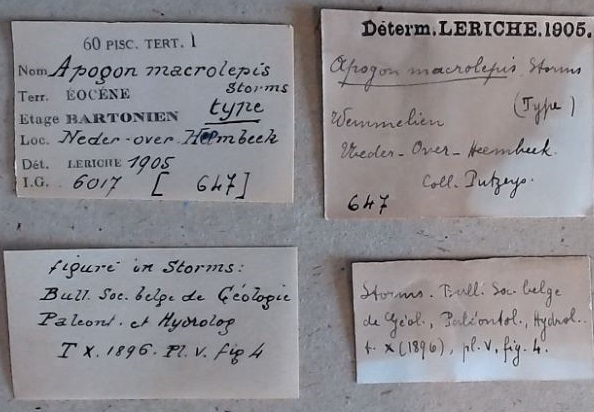 60 PISC. TERT. 1
Nom Apogon macrolepis
Storms
Terr. ÉOCÈNE
type
Etage BARTONIEN
Loc. Neder-over-Heembeek
Dét. LERICHE 1905
I.G. 6017 [ 647]
Déterm. LERICHE. 1905.
Apogon macrolepis Storms
(Type)
Wemmelien
Neder-Over-Heembeek.
Coll. Putzeys.
647
figuré in Storms:
Bull. Soc. belge de Géologie
Paleont. et Hydrolog
T X. 1896. Pl. V. fig 4
Storms. Bull. Soc. belge
de Géol., Paléontol., Hydrol.
t. X (1896), pl. V, fig. 4.